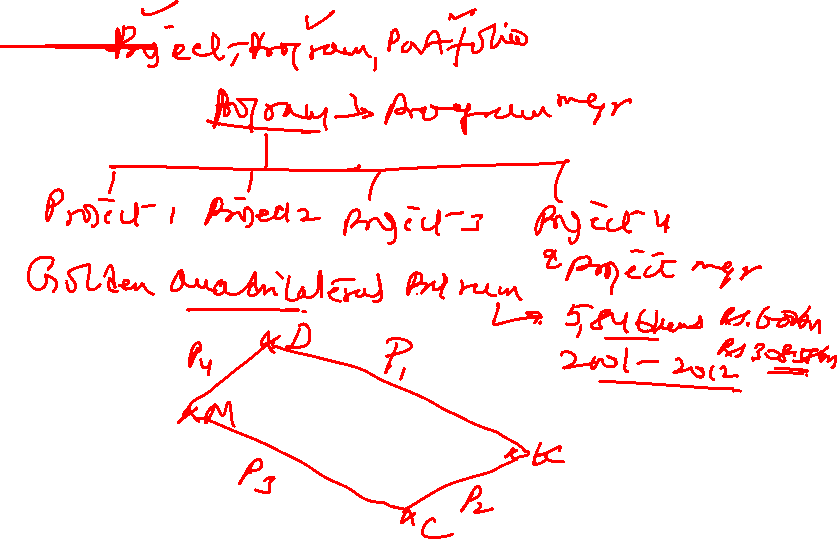 Project, Program, Portfolio
Program → Program mgr
Project 1 Project 2 Project-3 Project-4
Project mgr
Golden Quadrilateral Program
5,846 kms Rs. 600bn
2001-2012 Rs 308.58bn
D
P4 P1
M
P3 P2
C